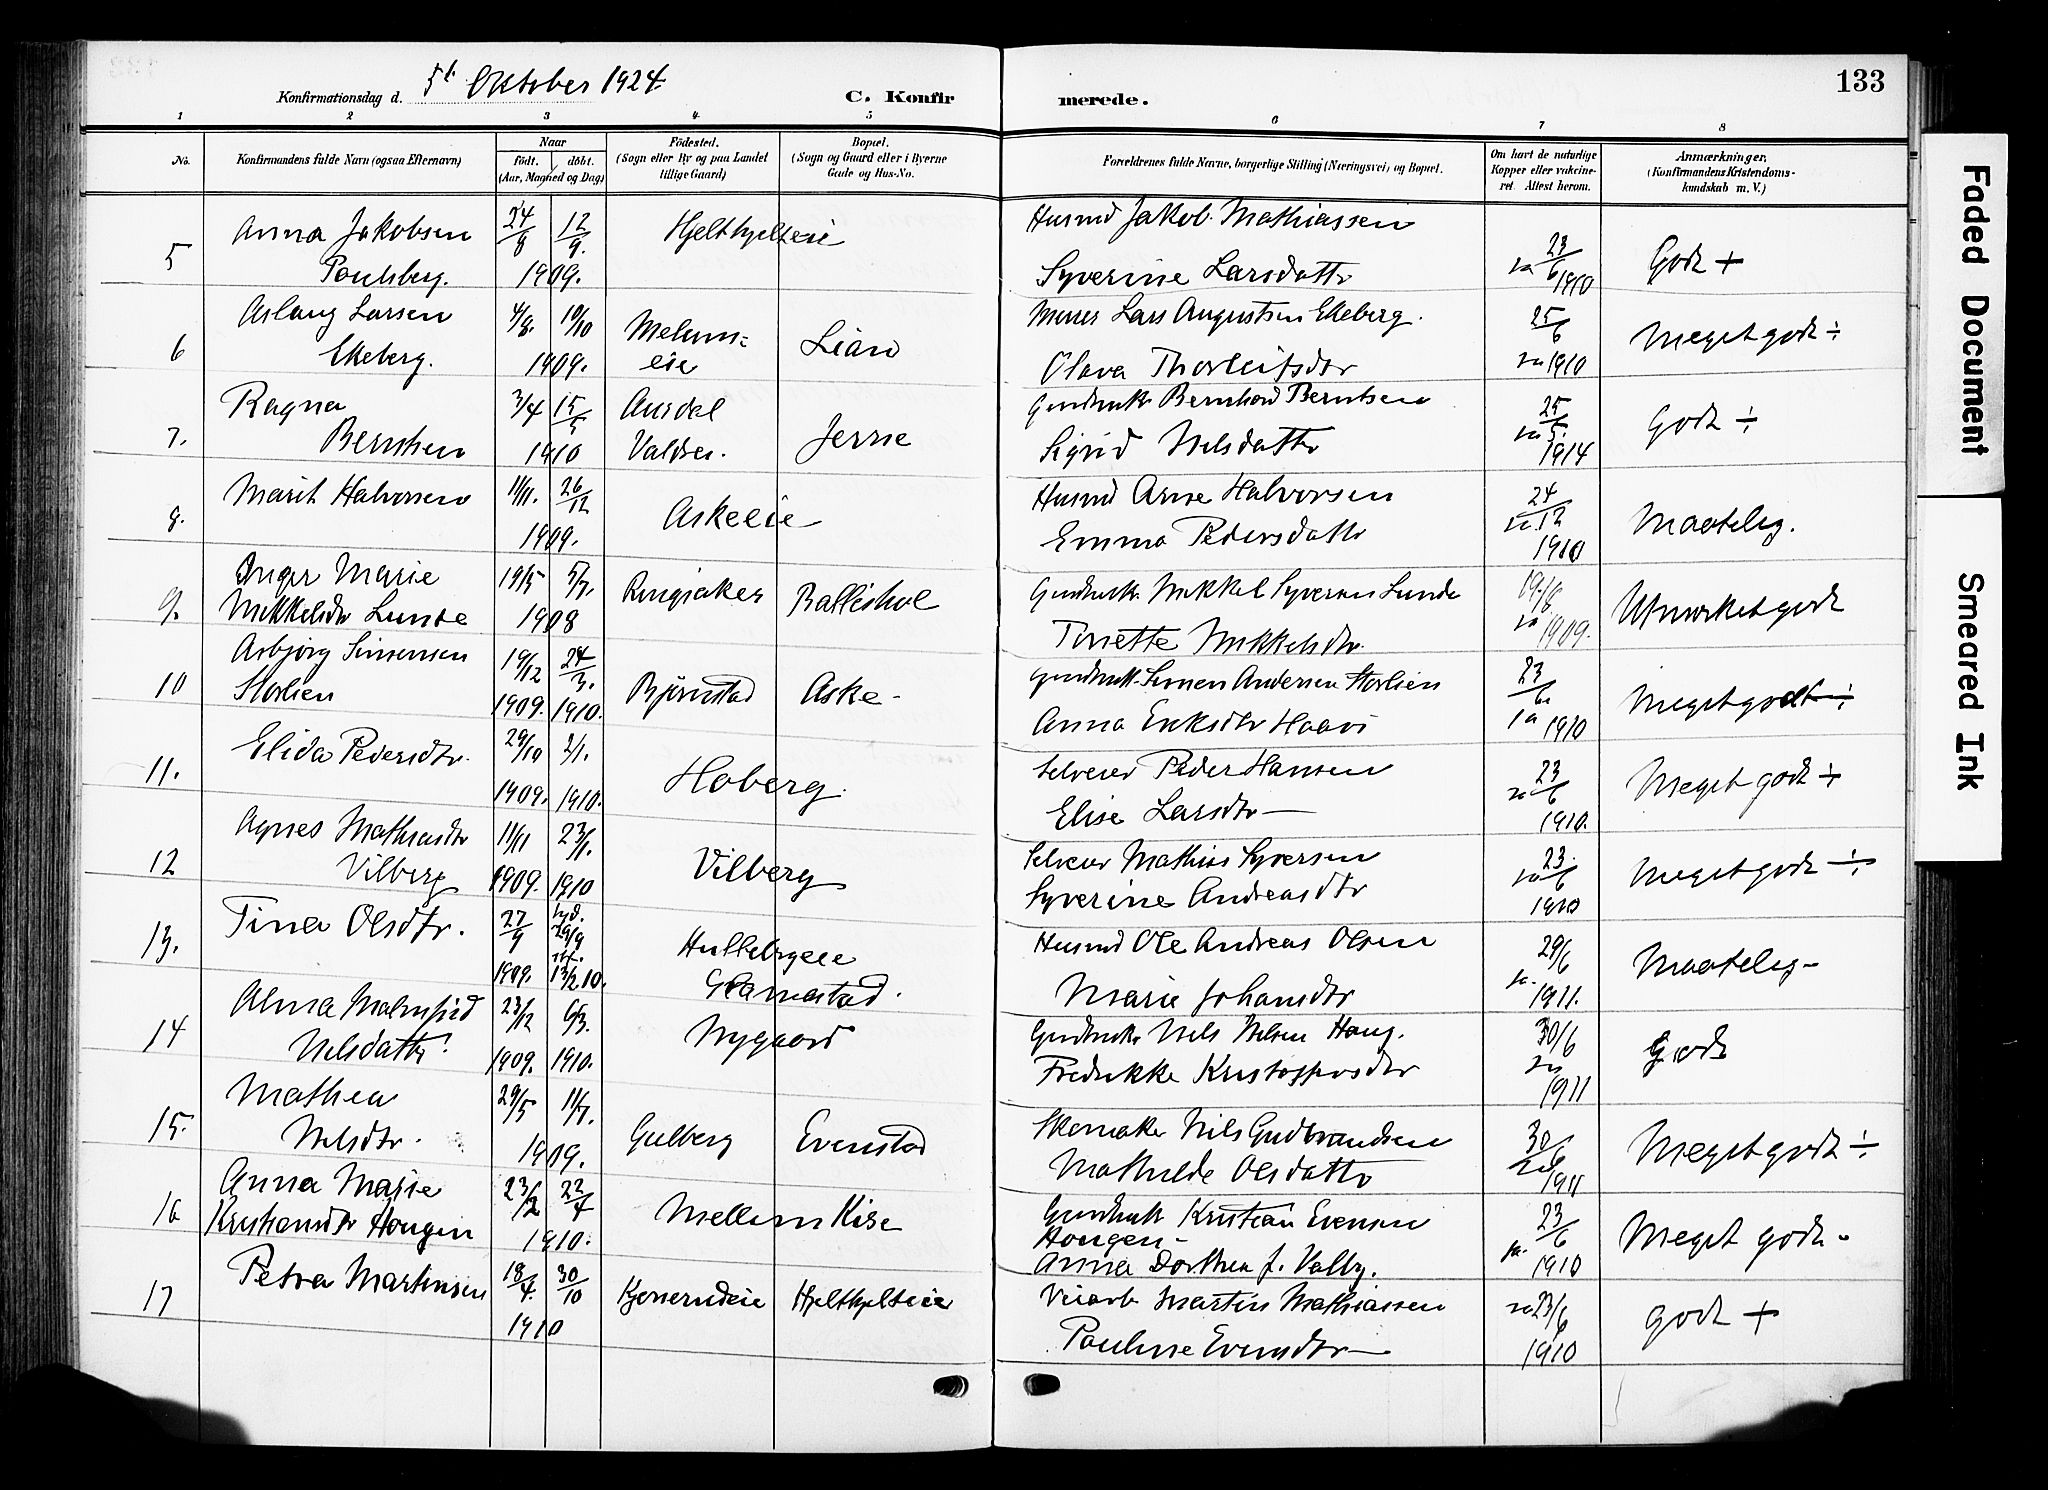 133
Konfirmationsdag d. 5t Oktober 1924. C. Konfirmerede.
1 2 3 4 5 6 7 8
No. Konfirmandens fulde Navn (ogsaa Efternavn) Naar födt. döbt. (Aar, Maaned og Dag) Födested. (Sogn eller By og paa Landet tillige Gaard) Bopæl. (Sogn og Gaard eller i Byerne Gade og Hus-No. Forældrenes fulde Navne, borgerlige Stilling (Næringsvei) og Bopæl. Om havt de naturlige Kopper eller vakcineret. Attest herom. Anmærkninger. (Konfirmandens Kristendomskundskab m. V.)
5 Anna Jakobsen 24/8 12/9 Hjelthjelteie Husmd Jakob Mathiassen va 23/6 Godt +
Poulsberg. 1909. Syverine Larsdattr 1910
6 Aslaug Larsen 4/8. 10/10 Melum= Lian Murer Lars Augustsen Ekeberg. 25/6 Meget godt ÷
Ekeberg. 1909. eie Olava Thorleifsdtr va 1910
7. Ragna 3/4 15/5 Aurdal Jerne Gaardbruk. Bernhard Berntsen 25/5. Godt ÷
Berntsen 1910 Valdres. Sigrid Nilsdattr va 1914
8. Marit Halvorsen 11/11. 26/12 Askeeie Husmd Arne Halvorsen 24/12 Maateleg.
1909. Emma Pedersdattr va 1910
9. Inger Marie 19/5 5/7. Ringsaker Ballishol Gardbruk. Mikkel Syversen Lunde 19/6 Utmerket godt
Mikkelsdtr Lunde 1908 Tinette Mikkelsdtr. va 1909.
10 Asbjörg Simensen 19/12 24/3. Björnstad Aske - Gardbruk. Simen Andersen Storlien 23/6 Meget godt ÷
Storlien 1909. 1910. Anna Eriksdtr Haavi va 1910
11. Elida Pedersdtr. 29/10 2/1. Hoberg. Selveier Peder Hansen va 23/6 Meget godt ÷
1909. 1910. Elise Larsdtr — 1910.
12 Agnes Mathiasdtr 11/11 23/1. Vilberg Selveier Mathias Syversen va 23/6 Meget godt ÷
Vilberg 1909. 1910 Syverine Andreasdtr 1910
13. Tina Olsdtr. 27/9 hjd. 29/9 Hullebyeie Husmd Ole Andreas Olsen 29/6 Maateleg -
1909. stf. 13/2 10. Gramstad. Marie Johansdtr va. 1911.
14 Alma Malmfrid 23/12 6/3. Nygaard Gardbruk. Nils Nilsen Haug. 30/6 godt
Nilsdattr. 1909. 1910. Fredrikke Kristoffersdtr va 1911
15. Mathea 29/5 11/7. Gulberg Evenstad Skomaker Nils Gudbrandsen 30/6 Meget godt ÷
Nilsdtr. 1909. Mathilde Olsdattr va 1911
16 Anna Marie 23/2 22/4 Mellem Kise Gardbruk Kristian Evensen 23/6 Meget godt -
Kristiansdtr Haugen 1910. Haugen - va. 1910
Anna Dorthea f. Valby.
17 Petra Martinsen 18/4. 30/10 Kjonerudeie Hjelthjelteie Veiarb Martin Mathiassen va 23/6 godt +
1910 Pauline Evensdtr — 1910
Faded Document
Smeared Ink